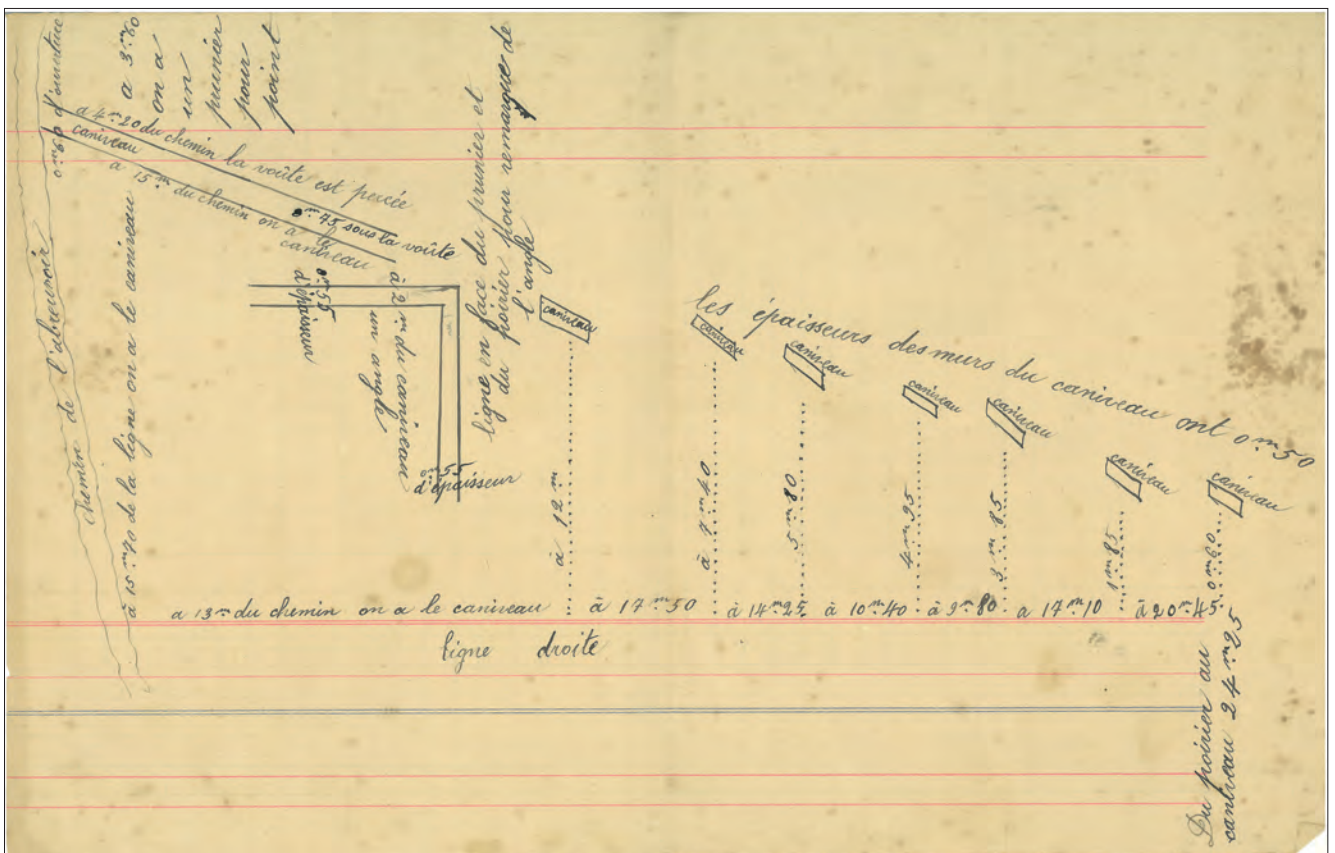 0m60 d'ouverture
a 3m80
on a
un
prunier
pour
point
a 4m20 du chemin la voûte est percée
caniveau
a 15m du chemin on a le
caniveau
0m75 sous la voûte
chemin de l'abreuvoir
à 15m70 de la ligne on a le caniveau
0m55
d'épaisseur
à 2m du caniveau
un angle
0m55
d'épaisseur
ligne en face du prunier et
du poirier pour remarque de
l'angle
les épaisseurs des murs du caniveau ont 0m50
caniveau
caniveau
caniveau
caniveau
caniveau
caniveau
caniveau
à 12m
à 7m40
5m80
4m95
3m85
1m85
0m60
a 13m du chemin on a le caniveau
à 17m50
à 14m25
à 10m40
à 9m80
a 17m10
à 20m45
ligne droite
Du poirier au
caniveau 24m25